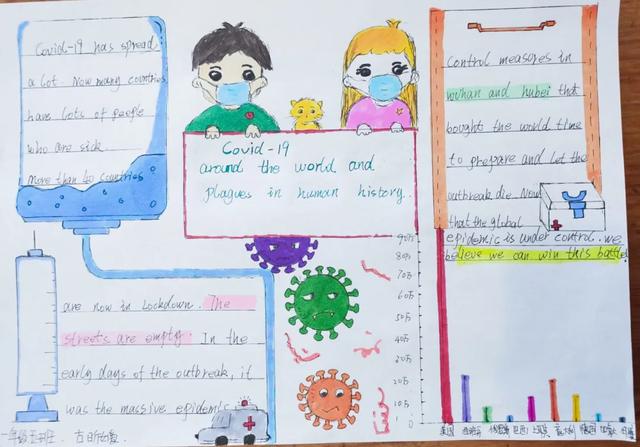 Covid-19 has spread
a lot. Now many countries
have lots of people
who are sick
more than 40 countries
Covid-19
around the world and
plagues in human history.
control measures in
wuhan and hubei that
bought the world time
to prepare and let the
outbreak die. Now
that the global
epidemic is under control. we
believe we can win this battle
are now in lockdown. The
streets are empty. In the
early days of the outbreak, it
was the massive epidemic
90万
80万
70万
60万
50万
40万
30万
20万
10万
0
美国 西班牙 德国 意大利